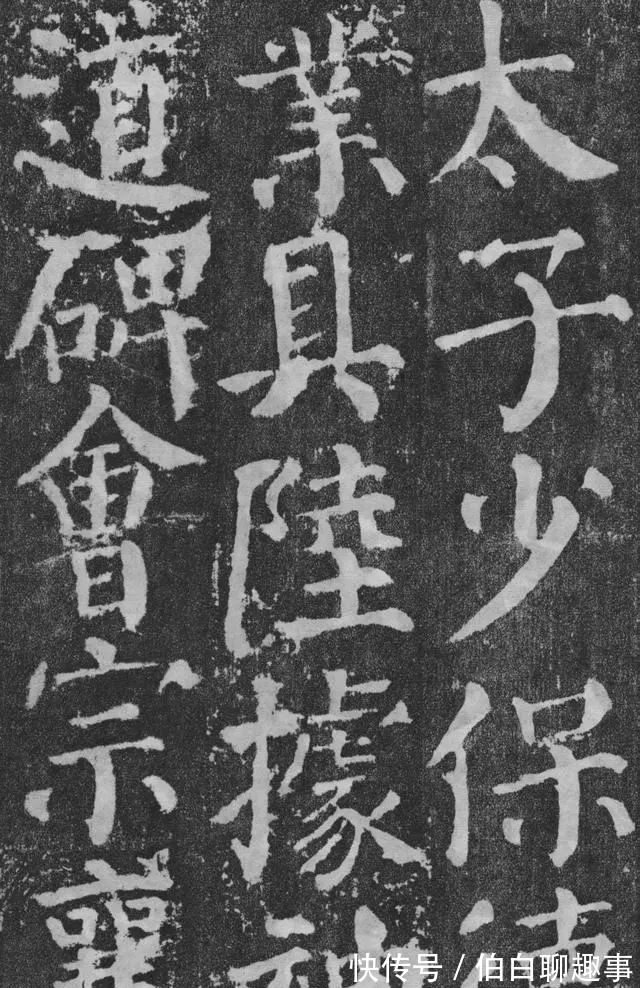 太子少保德
業具陸據神
道碑會宗襄
快传号/伯白聊趣事